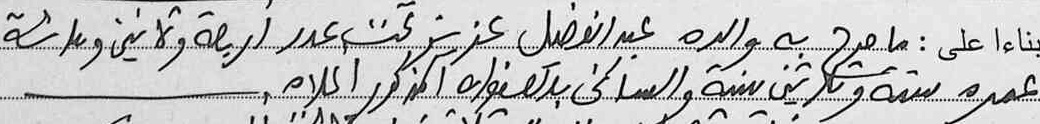 بناءا على : ما صرح به والده عبد الفضيل عزيز تحت عدد أربعة وثلاثين و
عمره ستة وثلاثين سنة والساكن بالعنوان المذكور أعلاه .